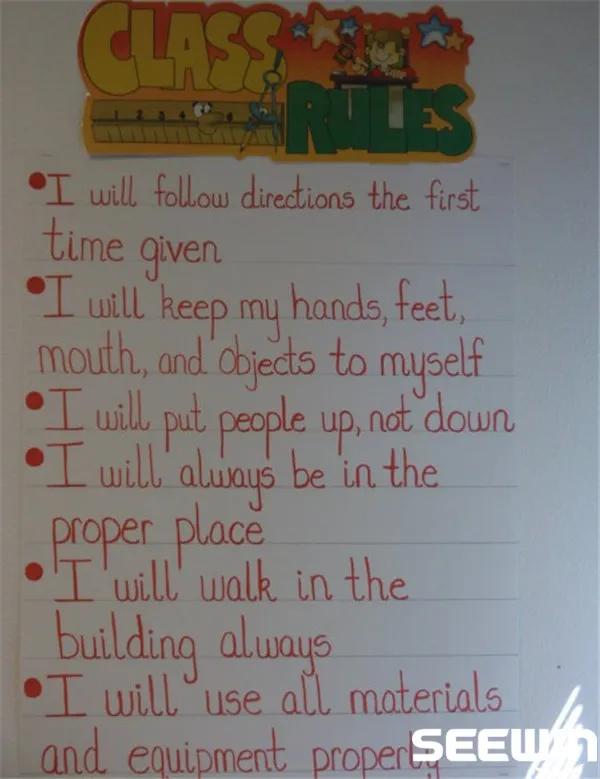 CLASS
1 2 3 4 6
RULES
• I will follow directions the first
time given
• I will keep my hands, feet,
mouth, and objects to myself
• I will put people up, not down
• I will always be in the
proper place
• I will walk in the
building always
• I will use all materials
and equipment properly
SEEWIN